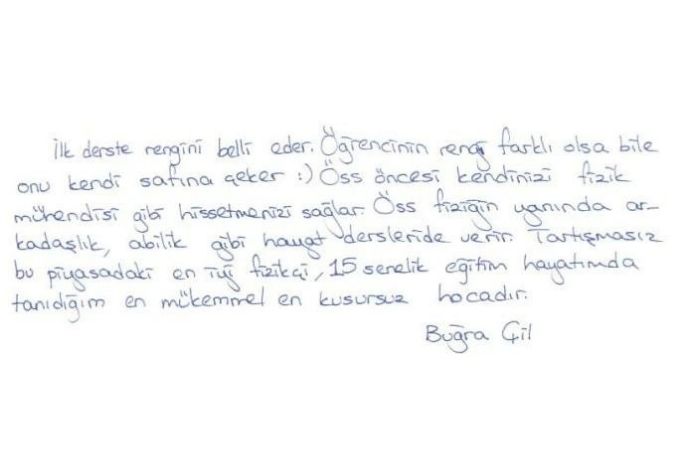 İlk derste rengini belli eder. Öğrencinin rengi farklı olsa bile
onu kendi safına çeker :) Öss öncesi kendinizi fizik
mühendisi gibi hissetmenizi sağlar. Öss fiziğin yanında ar-
kadaşlık, abilik gibi hayat dersleride verir. Tartışmasız
bu piyasadaki en iyi fizikçi, 15 senelik eğitim hayatımda
tanıdığım en mükemmel en kusursuz hocadır.
Buğra Çil